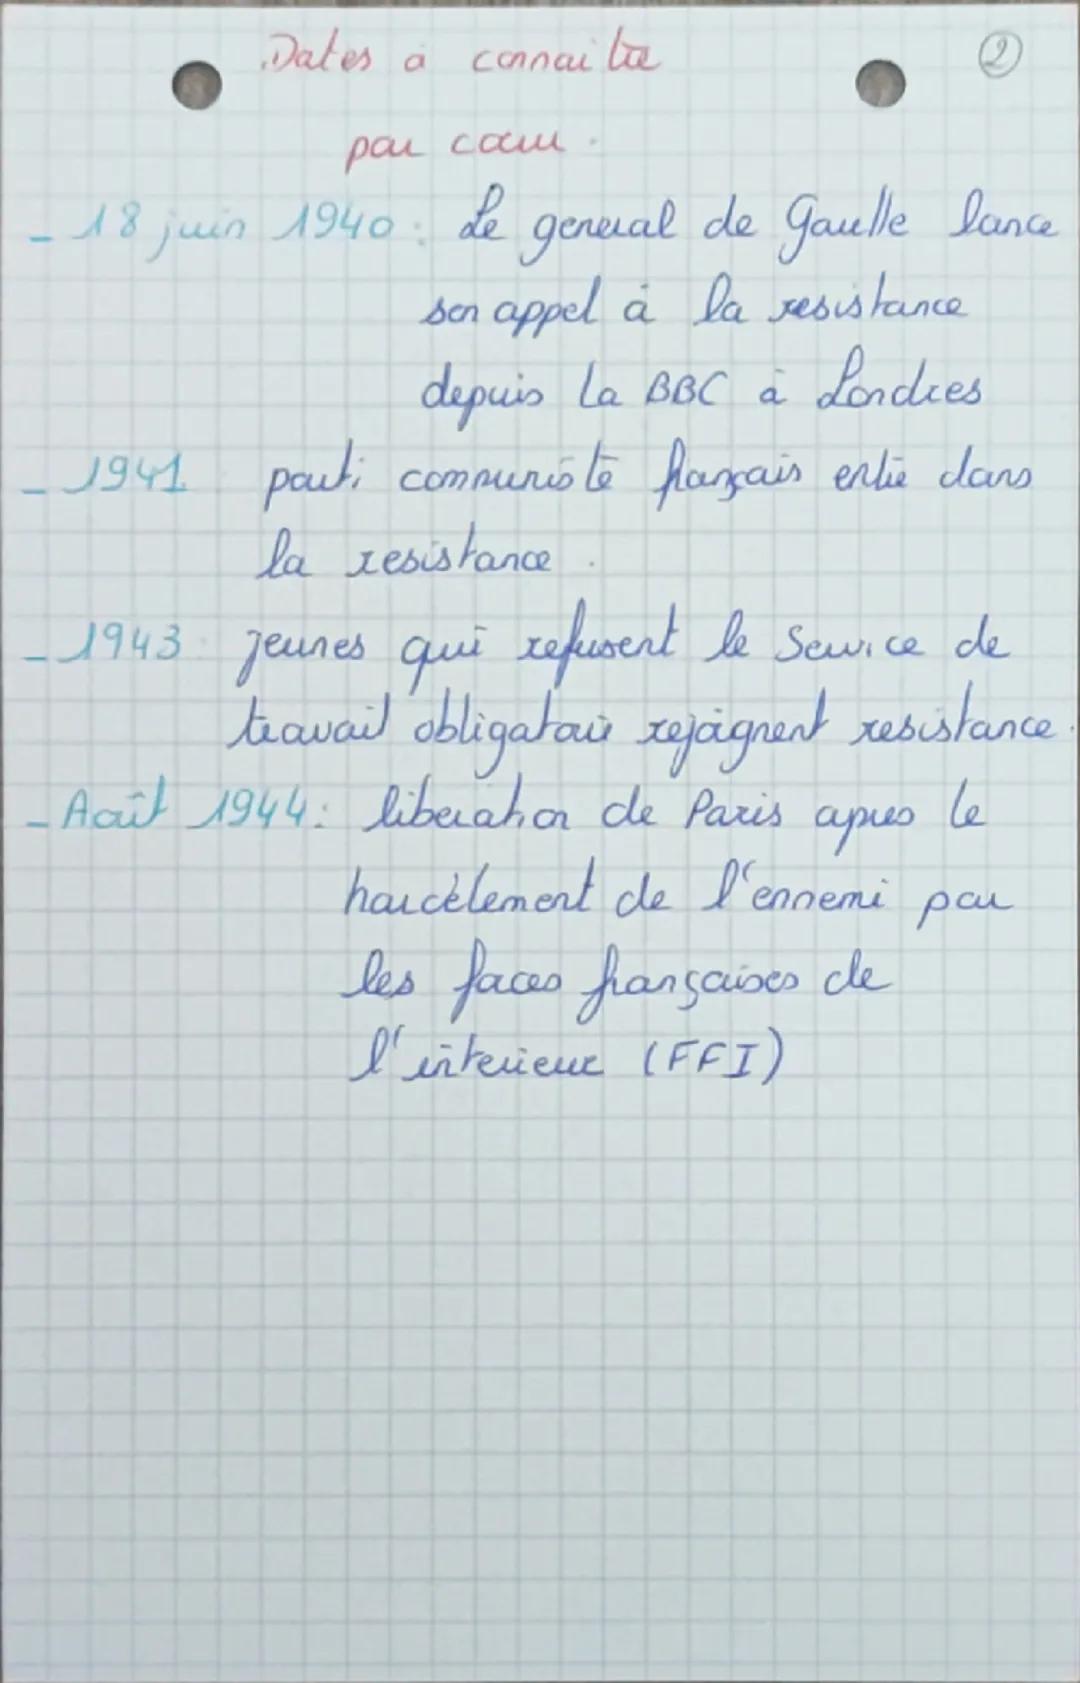 Dates à connaitre
②
par coeur.
- 18 juin 1940 : Le general de Gaulle lance
son appel à la resistance
depuis la BBC à Londres
- 1941 parti communiste français entre dans
la resistance.
- 1943 : jeunes qui refusent le Service de
travail obligatoire rejoignent resistance.
- Août 1944 : liberation de Paris apres le
harcèlement de l'ennemi par
les forces françaises de
l'interieur (FFI)